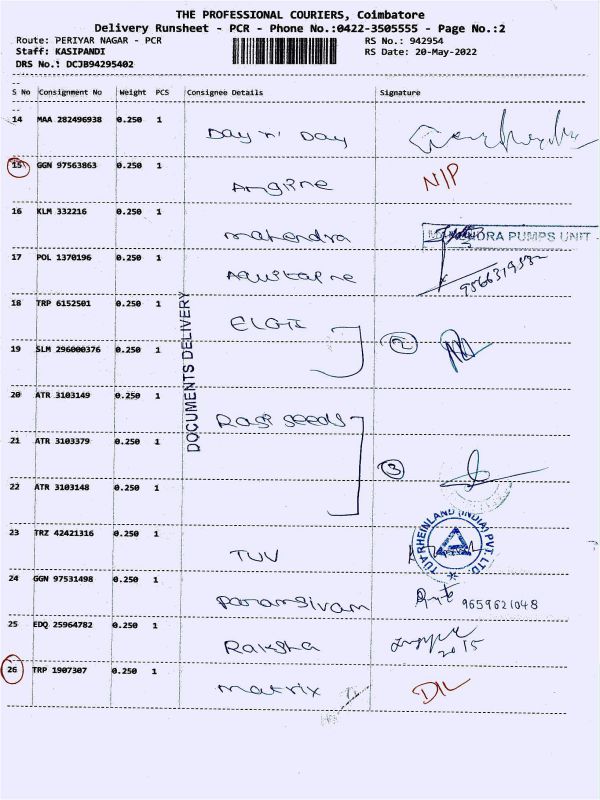 THE PROFESSIONAL COURIERS, Coimbatore
Delivery Runsheet - PCR - Phone No.:0422-3505555 - Page No.:2
Route: PERIYAR NAGAR - PCR RS No.: 942954
Staff: KASIPANDI RS Date: 20-May-2022
DRS No.: DCJB94295402
S No Consignment No Weight PCS Consignee Details Signature
14 MAA 282496938 0.250 1 Day 'n' Day
15 GGN 97563863 0.250 1 N/P
16 KLM 332216 0.250 1 mahendra PUMPS UNIT
17 POL 1370196 0.250 1
18 TRP 6152501 0.250 1 ELGI
DOCUMENTS DELIVERY
19 SLM 296000376 0.250 1 2
20 ATR 3103149 0.250 1 Rasi seeds
21 ATR 3103379 0.250 1 3
22 ATR 3103148 0.250 1
23 TRZ 42421316 0.250 1 TUV TUV RHEINLAND (INDIA) PVT. LTD.
24 GGN 97531498 0.250 1 Paramsivam 9659621048
25 EDQ 25964782 0.250 1 Raksha
26 TRP 1907307 0.250 1 matrix D/L